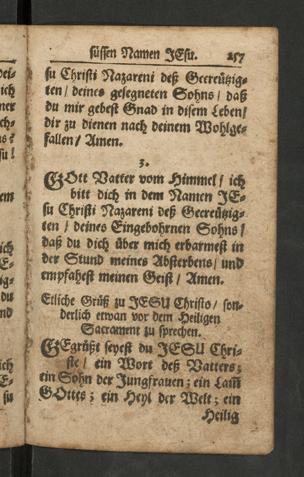 süssen Namen JEsu. 257
su Christi Nazareni deß Gecreutzig-
ten / deines gesegneten Sohns / daß
du mir gebest Gnad in disem Leben /
dir zu dienen nach deinem Wohlge-
fallen / Amen.
3.
GOtt Vatter vom Himmel / ich
bitt dich in dem Namen JE-
su Christi Nazareni deß Gecreutzig-
ten / deines Eingebohrnen Sohns /
daß du dich über mich erbarmest in
der Stund meines Absterbens / und
empfahest meinen Geist / Amen.
Etliche Grüß zu JESU Christo / son-
derlich etwan vor dem Heiligen
Sacrament zu sprechen.
GEgrüßt seyest du JESU Chri-
ste / ein Wort deß Vatters;
ein Sohn der Jungfrauen; ein Lam̃
GOttes; ein Heyl der Welt; ein
Heilig